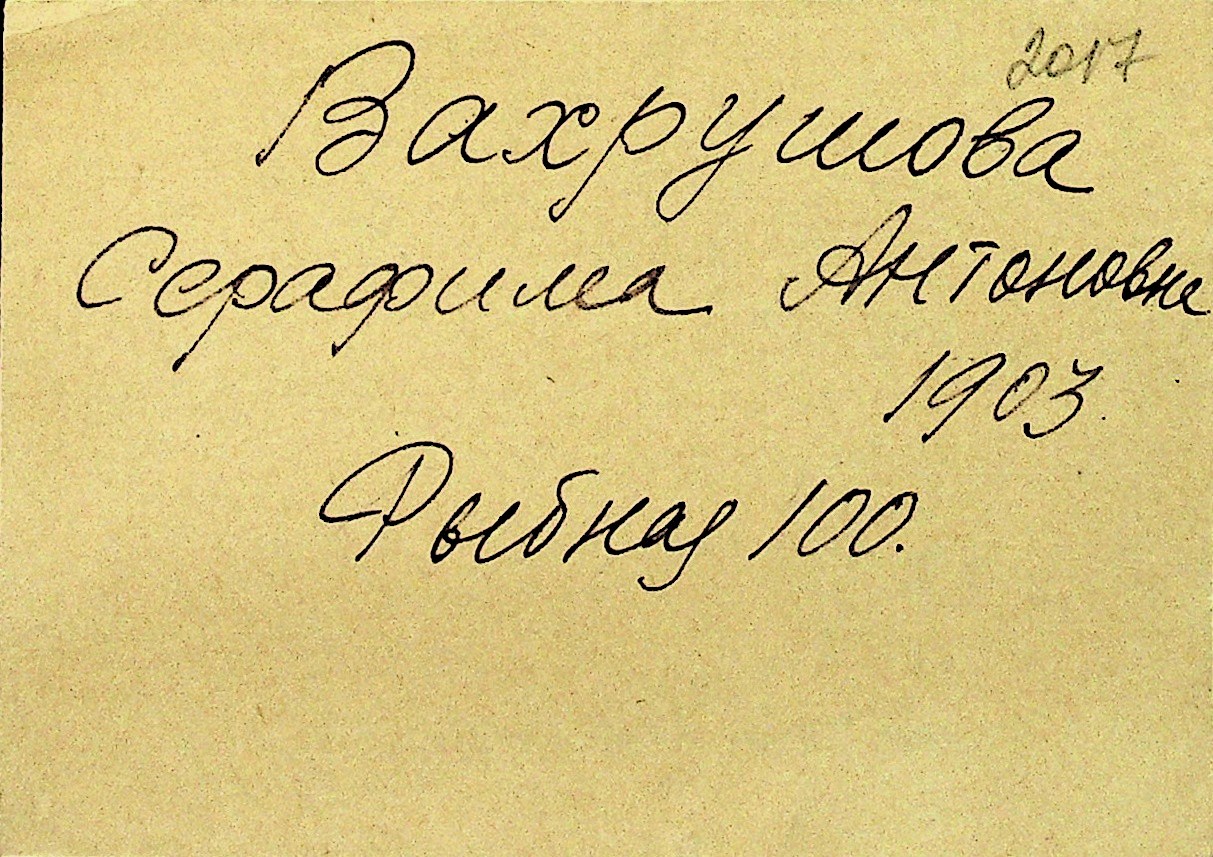 2017
Вахрушова
Серафима Антоновна
1903.
Рыбная 100.